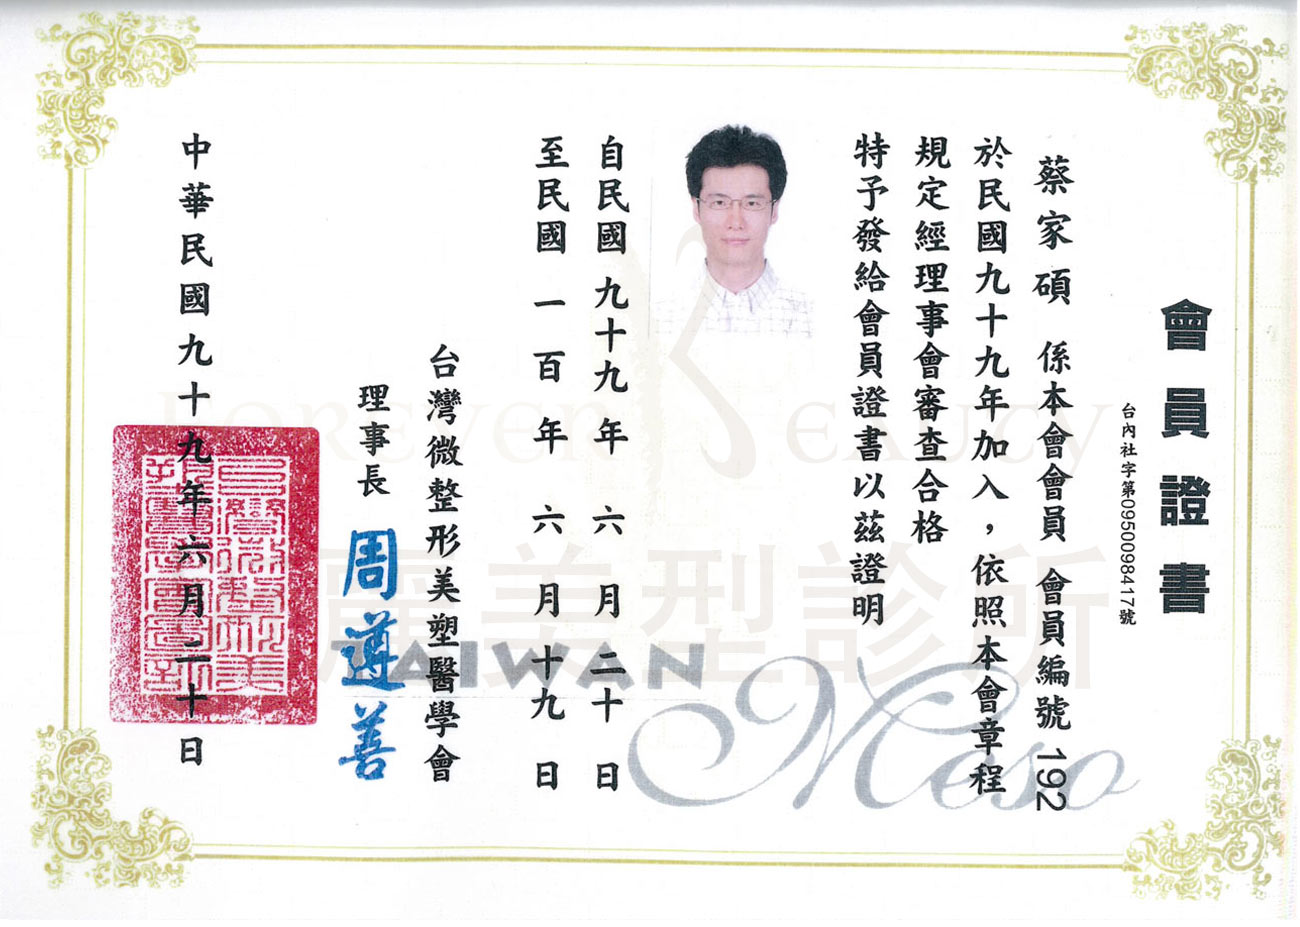 會員證書
台內社字第0950098417號
蔡家碩 係本會會員 會員編號 192
於民國九十九年加入，依照本會章程
規定經理事會審查合格
特予發給會員證書以茲證明
自民國 九十九年 六 月 二十 日
至民國 一百 年 六 月 十九 日
台灣微整形美塑醫學會
理事長 周遵善
中華民國九十九年六月二十日
TAIWAN
Meso
FOREVER BEAUCY
麗美型診所